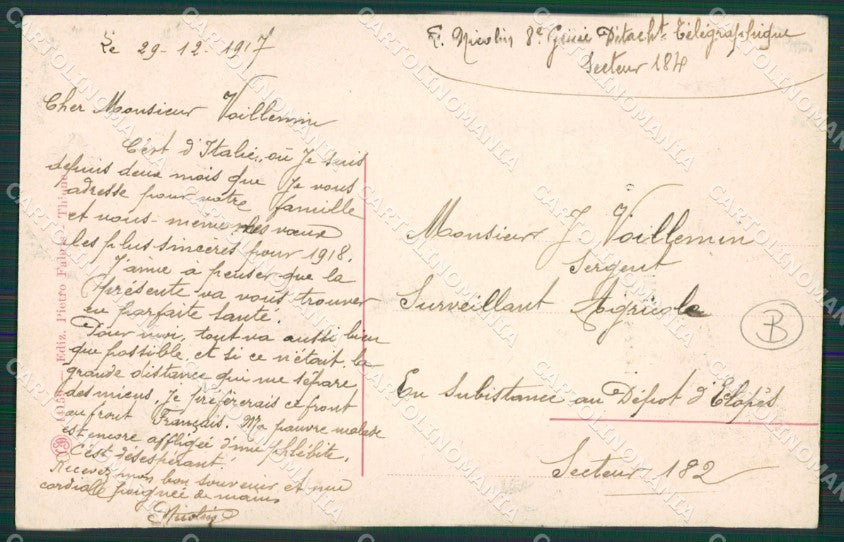 Le 29-12-1917
E. Nicolin 8e Génie Détacht Télégraphique
Secteur 184
Cher Monsieur Voillemin
C'est d'Italie, où Je suis
depuis deux mois que Je vous
adresse pour votre famille
et vous-même les vœux
les plus sincères pour 1918.
J'aime a penser que la
présente va vous trouver
en parfaite santé.
Pour moi, tout va aussi bien
que possible et si ce n'était la
grande distance qui me sépare
des miens, Je préférerais ce front
au front Français. Ma pauvre malade
est encore affligée d'une phlébite.
C'est désespérant.
Recevez mon bon souvenir et une
cordiale poignée de mains
ENicolin
Monsieur J Voillemin
Sergent
Surveillant Agricole
En subsistance au Dépot d'Eclopés
Secteur 182
B
Ediz. Pietro Fabris Thiene
CARTOLINOMANIA